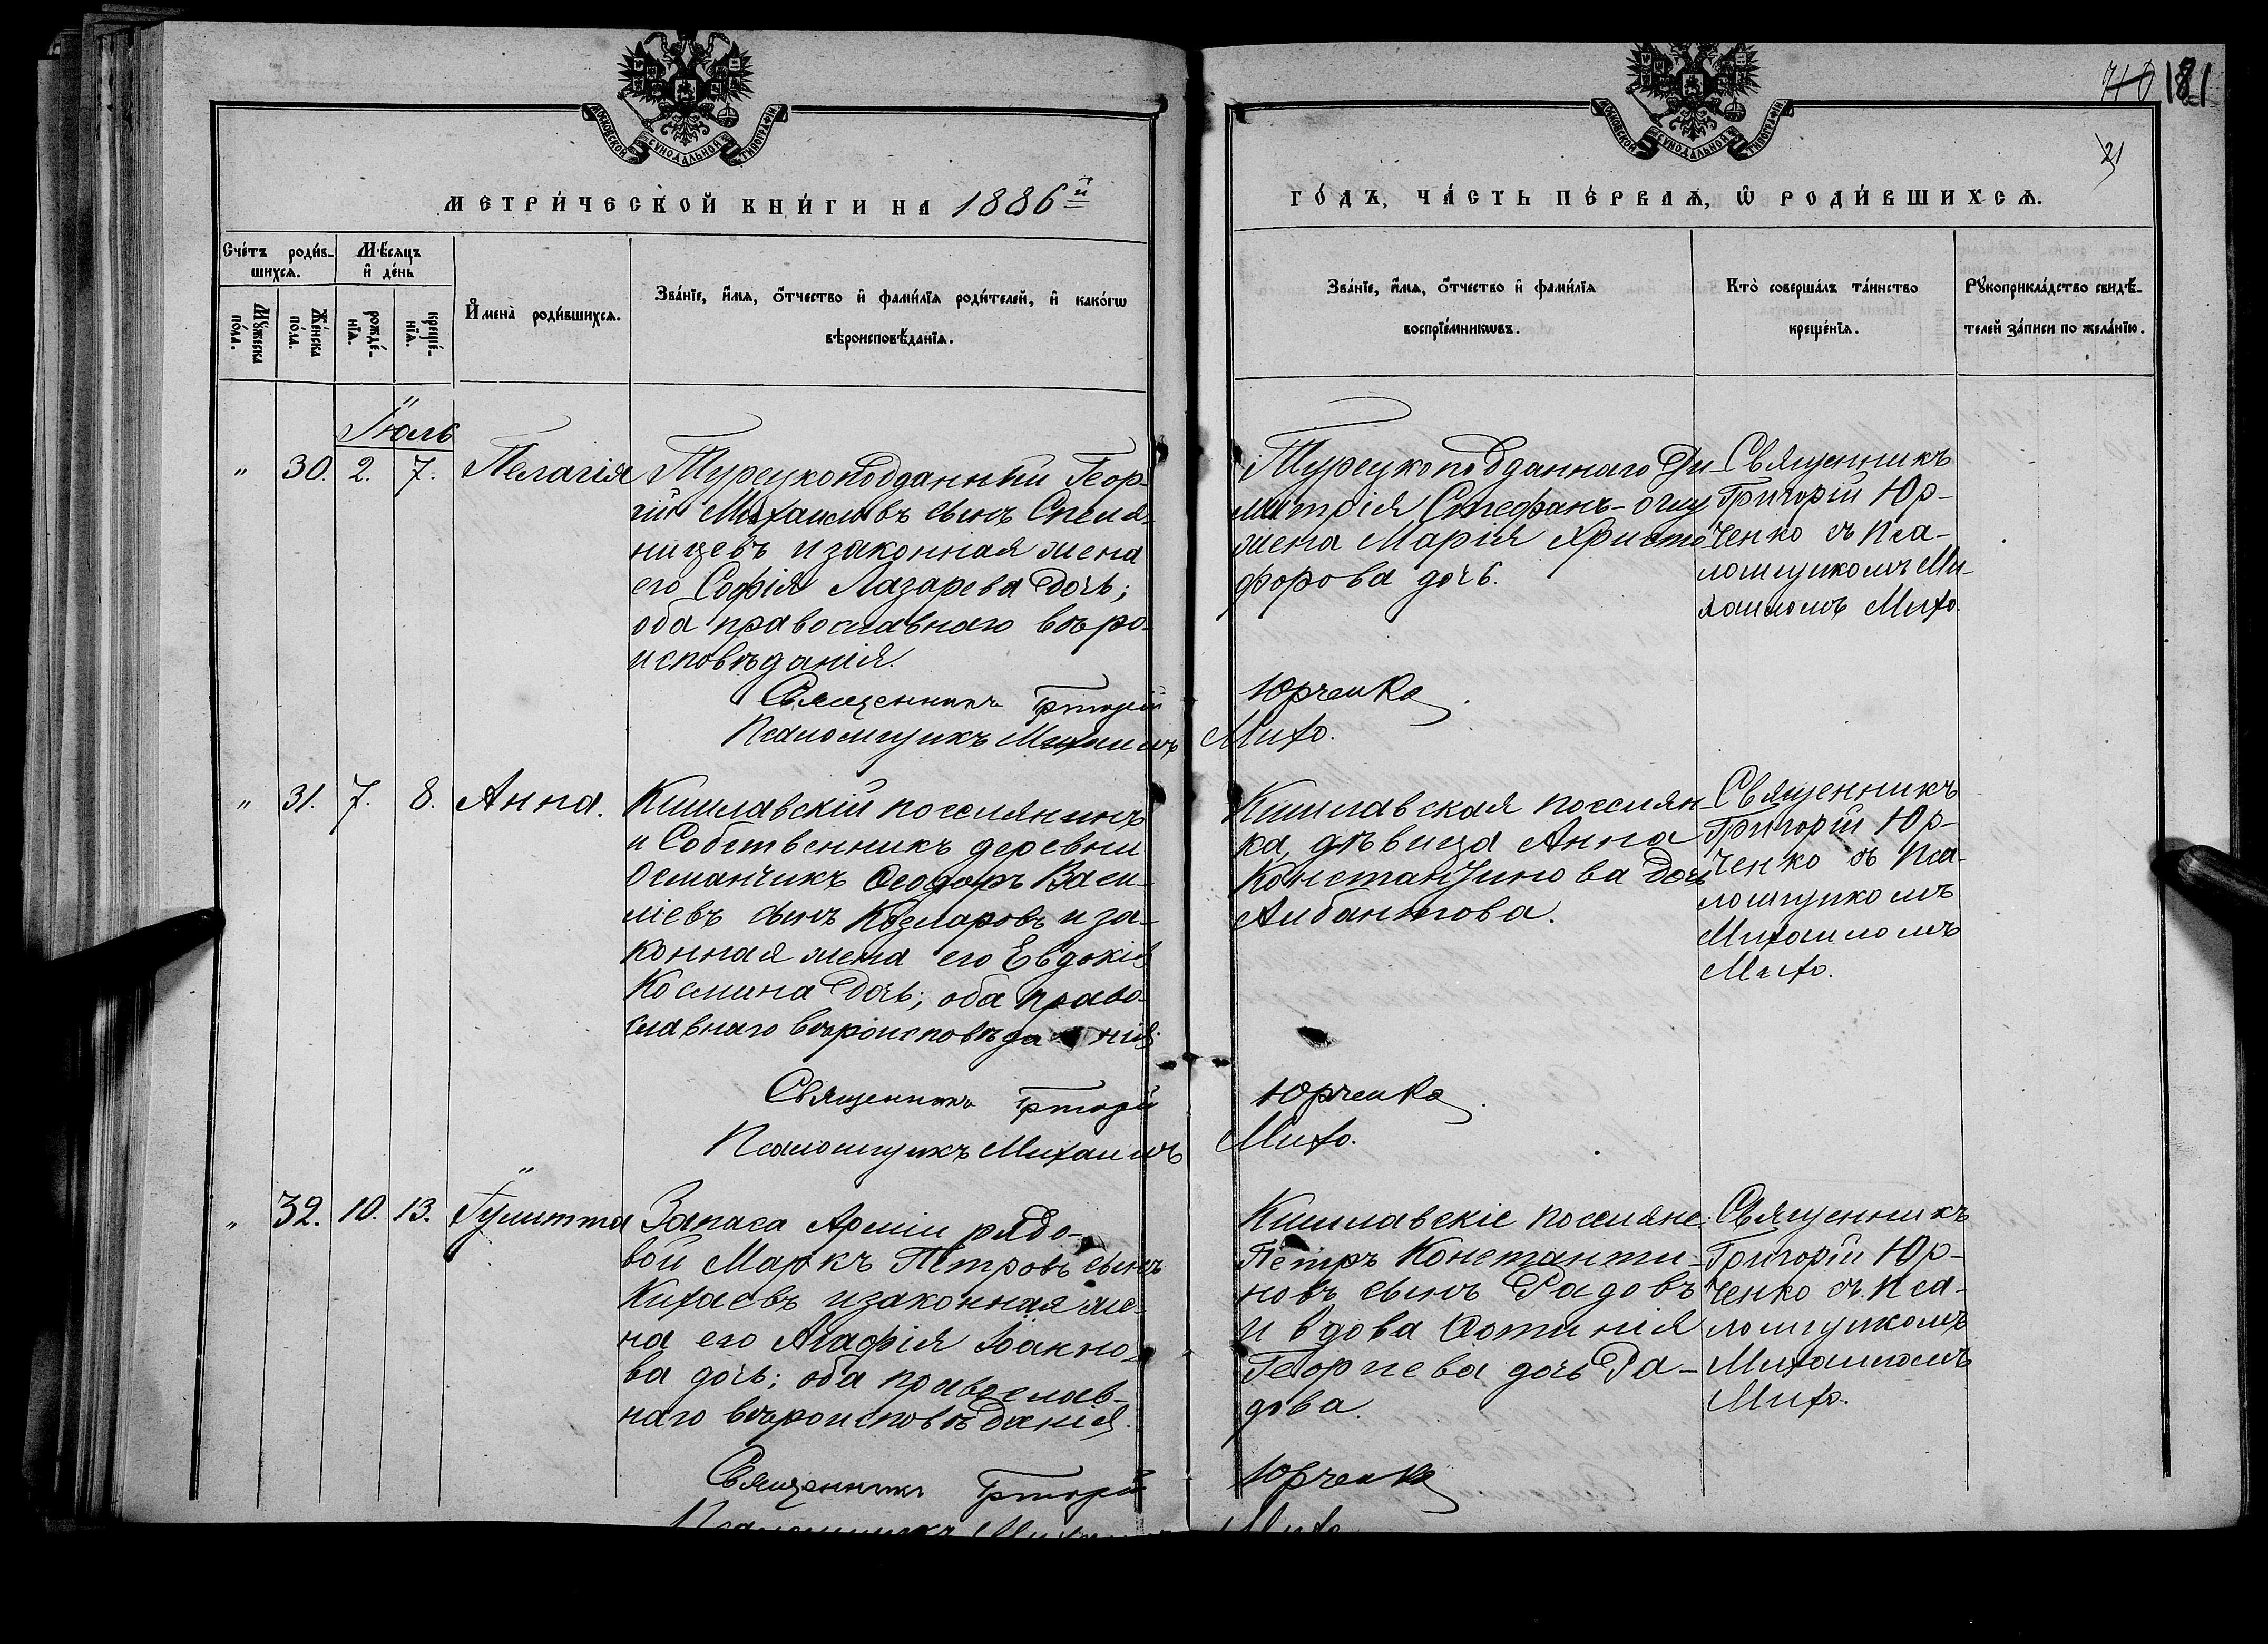 МОСКОВСКОЙ СѴНОДАЛЬНОЙ ТИПОГРАФІИ
МЕТРИ́ЧЕСКОЙ КНИ́ГИ НА 1886й
Сче́тъ роди́в-
шихсѧ.
Мѣ́сѧцъ
и҆ де́нь
Мꙋ́жеска
по́ла.
Же́нска
по́ла.
рожде́-
нїѧ.
креще́-
нїѧ.
И҆мена̀ роди́вшихсѧ.
Зва́нїе, и҆́мѧ, ѻ҆́тчество и҆ фами́лїѧ роди́телей, и҆ како́гѡ
вѣроисповѣ́данїѧ.
Іюль
" 30. 2. 7. Пелагія
Турецкоподданный Геор-
гій Михаиловъ сынъ
и законная жена
его Софія Лазарева дочь;
оба православнаго вѣро-
исповѣданія.
Священникъ Григорій
Псаломщикъ Михаилъ
" 31. 7. 8. Анна.
Кишлавскій поселянинъ
и Собственникъ деревни
Османчикъ Ѳеодоръ Васи-
ліевъ сынъ Козларовъ и за-
конная жена его Евдокія
Космина дочь; оба право-
славнаго вѣроисповѣданія.
Священникъ Григорій
Псаломщикъ Михаилъ
" 32. 10. 13. Іулитта
Запаса Арміи рядо-
вой Маркъ Петровъ сынъ
Кихаевъ и законная же-
на его Агафія
ва дочь; оба православ-
наго вѣроисповѣданія.
Священникъ Григорій
Псаломщикъ Михаилъ
181
21
МОСКОВСКОЙ СѴНОДАЛЬНОЙ ТИПОГРАФІИ
ГО́ДЪ, ЧА́СТЬ ПЕ́РВАѦ, Ѡ҆ РОДИ́ВШИХСѦ.
Зва́нїе, и҆́мѧ, ѻ҆́тчество и҆ фами́лїѧ
воспрїе́мникѡвъ.
Кто̀ соверша́лъ та́инство
креще́нїѧ.
Рꙋкоприкла́дство свидѣ́-
телей за́писи по жела́нїю.
Турецкоподданнаго Ди-
митрія Стефанъ-оглу
жена Марія Христо
форова дочь.
Священникъ
Григорій Юр-
ченко съ Пса-
ломщикомъ Ми-
хаиломъ Михо.
Юрченко
Михо.
Кишлавская поселян-
ка, дѣвица Анна
Константинова дочь
Албантова.
Священникъ
Григорій Юр-
ченко съ Пса-
ломщикомъ
Михаиломъ
Михо.
Юрченко.
Михо.
Кишлавскіе поселяне:
Петръ Константи-
новъ сынъ Радовъ
и вдова Фотинія
Георгіева дочь Ра-
дова.
Священникъ
Григорій Юр-
ченко съ Пса-
ломщикомъ
Михаиломъ
Михо.
Юрченко
Михо